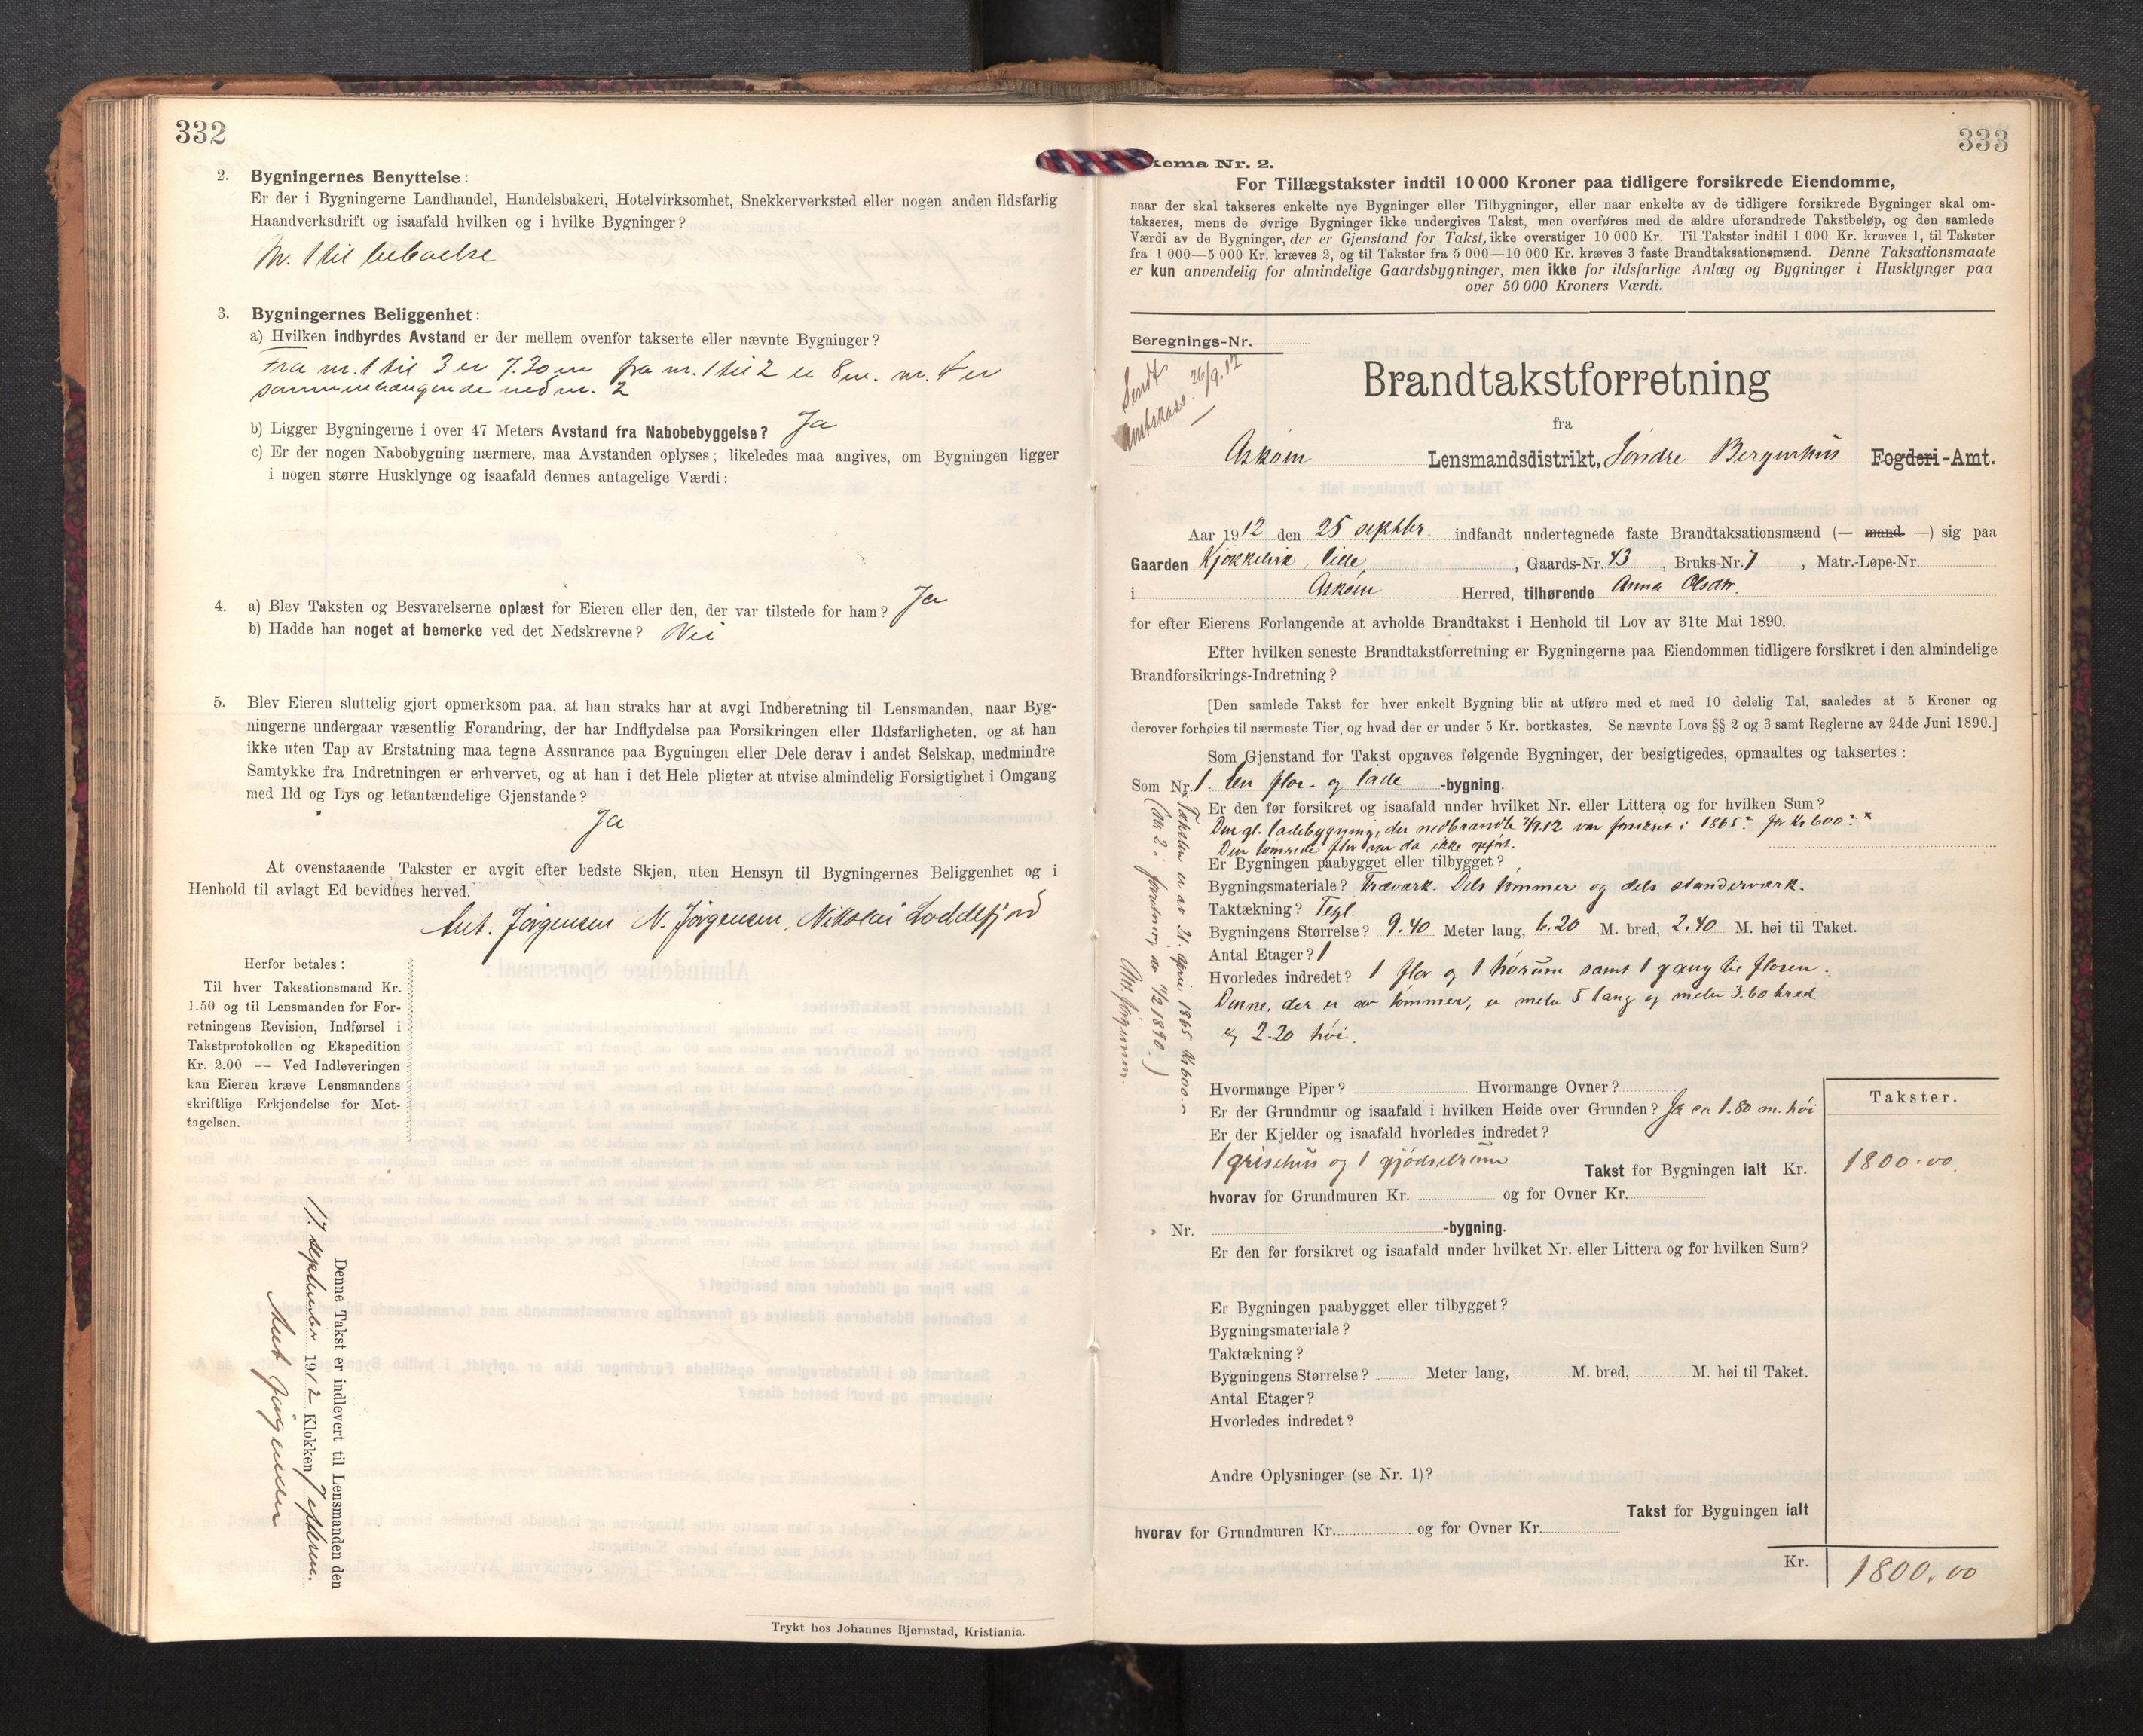 332
2. Bygningernes Benyttelse:
Er der i Bygningerne Landhandel, Handelsbakeri, Hotelvirksomhet, Snekkerverksted eller nogen anden ildsfarlig
Haandverksdrift og isaafald hvilken og i hvilke Bygninger?
Nr. 1 til beboelse
3. Bygningernes Beliggenhet:
a) Hvilken indbyrdes Avstand er der mellem ovenfor takserte eller nævnte Bygninger?
Fra nr. 1 til 3 er 7.20 m fra nr. 1 til 2 er 8 m. nr. 4 er
sammenhængende med nr. 2
b) Ligger Bygningerne i over 47 Meters Avstand fra Nabobebyggelse? Ja
c) Er der nogen Nabobygning nærmere, maa Avstanden oplyses; likeledes maa angives, om Bygningen ligger
i nogen større Husklynge og isaafald dennes antagelige Værdi:
4. a) Blev Taksten og Besvarelserne oplæst for Eieren eller den, der var tilstede for ham? Ja
b) Hadde han noget at bemerke ved det Nedskrevne? Nei
5. Blev Eieren sluttelig gjort opmerksom paa, at han straks har at avgi Indberetning til Lensmanden, naar Byg-
ningerne undergaar væsentlig Forandring, der har Indflydelse paa Forsikringen eller Ildsfarligheten, og at han
ikke uten Tap av Erstatning maa tegne Assurance paa Bygningen eller Dele derav i andet Selskap, medmindre
Samtykke fra Indretningen er erhvervet, og at han i det Hele pligter at utvise almindelig Forsigtighet i Omgang
med Ild og Lys og letantændelige Gjenstande?
Ja
At ovenstaaende Takster er avgit efter bedste Skjøn, uten Hensyn til Bygningernes Beliggenhet og i
Henhold til avlagt Ed bevidnes herved.
Ant. Jørgensen N. Jørgensen, Nikolai Loddefjord
Herfor betales:
Til hver Taksationsmand Kr.
1.50 og til Lensmanden for For-
retningens Revision, Indførsel i
Takstprotokollen og Ekspedition
Kr. 2.00 — Ved Indleveringen
kan Eieren kræve Lensmandens
skriftlige Erkjendelse for Mot-
tagelsen.
Denne Takst er indlevert til Lensmanden den
17 september 1912 Klokken 7 efterm.
Ant Jørgensen
Trykt hos Johannes Bjørnstad, Kristiania.
333
kema Nr. 2.
For Tillægstakster indtil 10 000 Kroner paa tidligere forsikrede Eiendomme,
naar der skal takseres enkelte nye Bygninger eller Tilbygninger, eller naar enkelte av de tidligere forsikrede Bygninger skal om-
takseres, mens de øvrige Bygninger ikke undergives Takst, men overføres med de ældre uforandrede Takstbeløp, og den samlede
Værdi av de Bygninger, der er Gjenstand for Takst, ikke overstiger 10 000 Kr. Til Takster indtil 1 000 Kr. kræves 1, til Takster
fra 1 000—5 000 Kr. kræves 2, og til Takster fra 5 000—10 000 Kr. kræves 3 faste Brandtaksationsmænd. Denne Taksationsmaate
er kun anvendelig for almindelige Gaardsbygninger, men ikke for ildsfarlige Anlæg og Bygninger i Husklynger paa
over 50 000 Kroners Værdi.
Beregnings-Nr.
Sendt
Amtskass. 26/9.12
Brandtakstforretning
fra
Askøen Lensmandsdistrikt, Søndre Bergenhus Fogderi-Amt.
Aar 1912 den 25 septbr. indfandt undertegnede faste Brandtaksationsmænd (— mand —) sig paa
Gaarden Kjøkkelvik, lille, Gaards-Nr. 43, Bruks-Nr. 7, Matr.-Løpe-Nr.
i Askøen Herred, tilhørende Anna Olsdtr.
for efter Eierens Forlangende at avholde Brandtakst i Henhold til Lov av 31te Mai 1890.
Efter hvilken seneste Brandtakstforretning er Bygningerne paa Eiendommen tidligere forsikret i den almindelige
Brandforsikrings-Indretning?
[Den samlede Takst for hver enkelt Bygning blir at utføre med et med 10 delelig Tal, saaledes at 5 Kroner og
derover forhøies til nærmeste Tier, og hvad der er under 5 Kr. bortkastes. Se nævnte Lovs §§ 2 og 3 samt Reglerne av 24de Juni 1890.]
Som Gjenstand for Takst opgaves følgende Bygninger, der besigtigedes, opmaaltes og taksertes:
Som Nr. 1. En flor- og lade -bygning.
Er den før forsikret og isaafald under hvilket Nr. eller Littera og for hvilken Sum?
Den gl. ladebygning, der nedbrandte 7/9.12 var forsikret i 1865 for Kr 600 x
Den tømrede flor var da ikke opført.
x Taksten er av 21 april 1865 Kr 600.-
(Nr 2 i forretning av 11/2 1890.)
Ant Jørgensen.
Er Bygningen paabygget eller tilbygget?
Bygningsmateriale? Træværk. Dels tømmer og dels standerværk.
Taktækning? Tegl.
Bygningens Størrelse? 9.40 Meter lang, 6.20 M. bred, 2.40 M. høi til Taket.
Antal Etager? 1
Hvorledes indredet? 1 flor og 1 høirum samt 1 gang til floren.
Denne, der er av tømmer, er meter 5 lang og meter 3.60 bred
og 2.20 høi.
Hvormange Piper? Hvormange Ovner?
Er der Grundmur og isaafald i hvilken Høide over Grunden? Ja ca 1.80 m. høi
Er der Kjelder og isaafald hvorledes indredet?
1 grisehus og 1 gjødselrum
Takster.
Takst for Bygningen ialt Kr. 1800.00
hvorav for Grundmuren Kr. og for Ovner Kr.
" Nr. -bygning.
Er den før forsikret og isaafald under hvilket Nr. eller Littera og for hvilken Sum?
Er Bygningen paabygget eller tilbygget?
Bygningsmateriale?
Taktækning?
Bygningens Størrelse? Meter lang, M. bred, M. høi til Taket.
Antal Etager?
Hvorledes indredet?
Andre Oplysninger (se Nr. 1)?
Takst for Bygningen ialt
hvorav for Grundmuren Kr. og for Ovner Kr.
Kr. 1800.00